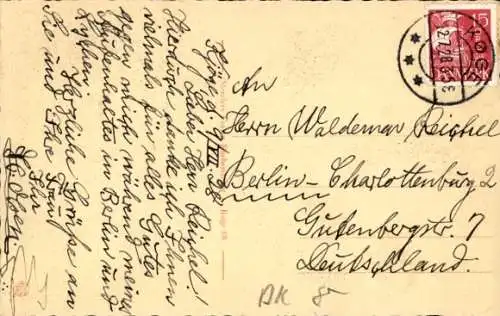 15
KØGE
27.7.28.
Køge, 9/VII 28
Lieber Herr Reichel!
Hierdurch danke ich Ihnen
vielmals für alles Gutes
gegen mich während meines
Aufenthaltes in Berlin und
Herzliche Grüsse an
Sie und Ihre Frau
Ihr
An
Herrn Waldemar Reichel
Berlin-Charlottenburg 2
Gutenbergstr. 7
Deutschland.